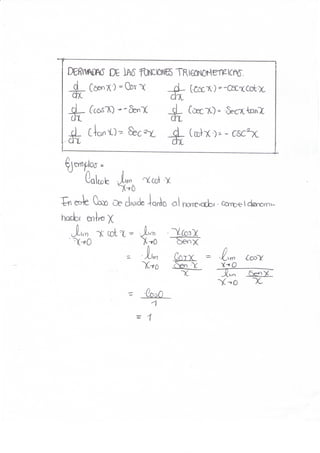 DERIVADAS DE LAS FUNCIONES TRIGONOMETRICAS.
d/dx (sen x) = Cos x    d/dx (csc x) = -csc x cot x
d/dx (cos x) = -Sen x    d/dx (sec x) = Sec x tan x
d/dx (tan x) = Sec²x    d/dx (cot x) = -csc²x
Ejemplos =
Calcule lim x→0 x cot x
En este Caso se divide tanto al numerador como el denomi-
nador entre x
lim x→0 x cot x = lim x→0 x cos x / Sen x
= lim x→0 Cos x / (Sen x / x) = lim x→0 cos x / lim x→0 Sen x / x
= Cos 0 / 1
= 1